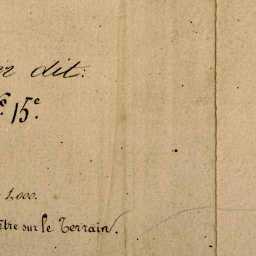 er dit.
15.e
1,000.
ètre sur le Terrain.